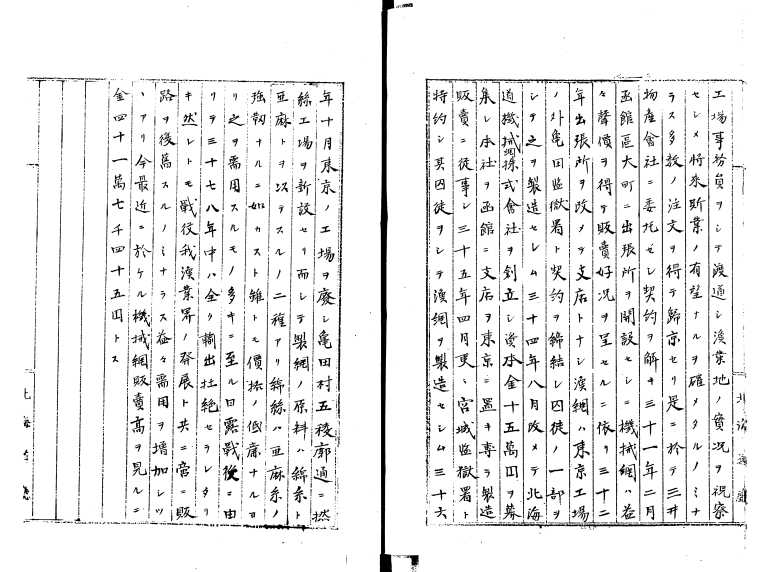 工場事務員ヲシテ渡道シ漁業地ノ實況ヲ視察
セシメ将来斯業ノ有望ナルヲ確メタルノミナ
ラス多数ノ注文ヲ得テ歸京セリ是ニ於テ三井
物産會社ニ委托セシ契約ヲ解キ三十一年二月
函館區大町ニ出張所ヲ開設セシニ機械網ハ益
々聲價ヲ得テ販賣好况ヲ呈セルニ依リ三十二
年出張所ヲ改メテ支店トナシ漁網ハ東京工場
ノ外亀田監獄署ト契約ヲ締結シ囚徒ノ一部ヲ
シテ之ヲ製造セシム三十四年八月改メテ北海
道機械網株式會社ヲ創立シ資本金十五萬円ヲ募
集シ本社ヲ函館ニ支店ヲ東京ニ置キ専ラ製造
販賣ニ従事シ三十五年四月更ニ宮城監獄署ト
特約シ其囚徒ヲシテ漁網ヲ製造セシム三十六
年十月東京ノ工場ヲ廃シ亀田村五稜廓通ニ撚
絲工場ヲ新設セリ而シテ製網ノ原料ハ綿絲ト
亜麻トヲ以テスルノ二種アリ綿絲ハ亜麻糸ノ
強靱ナルニ如カスト雖トモ價格ノ低廉ナルヨ
リ之ヲ需用スルモノ多キニ至ル日露戰後ニ由
リテ三十七八年中ハ全ク輸出杜絶セラレタリ
キ然レトモ戰役我漁業界ノ発展ト共ニ啻ニ販
路ヲ復舊スルノミナラス益々需用ヲ増加シツ
ヽアリ今最近ニ於ケル機械網販賣高ヲ見ルニ
金四十一萬七千四十五円トス
北海道廳